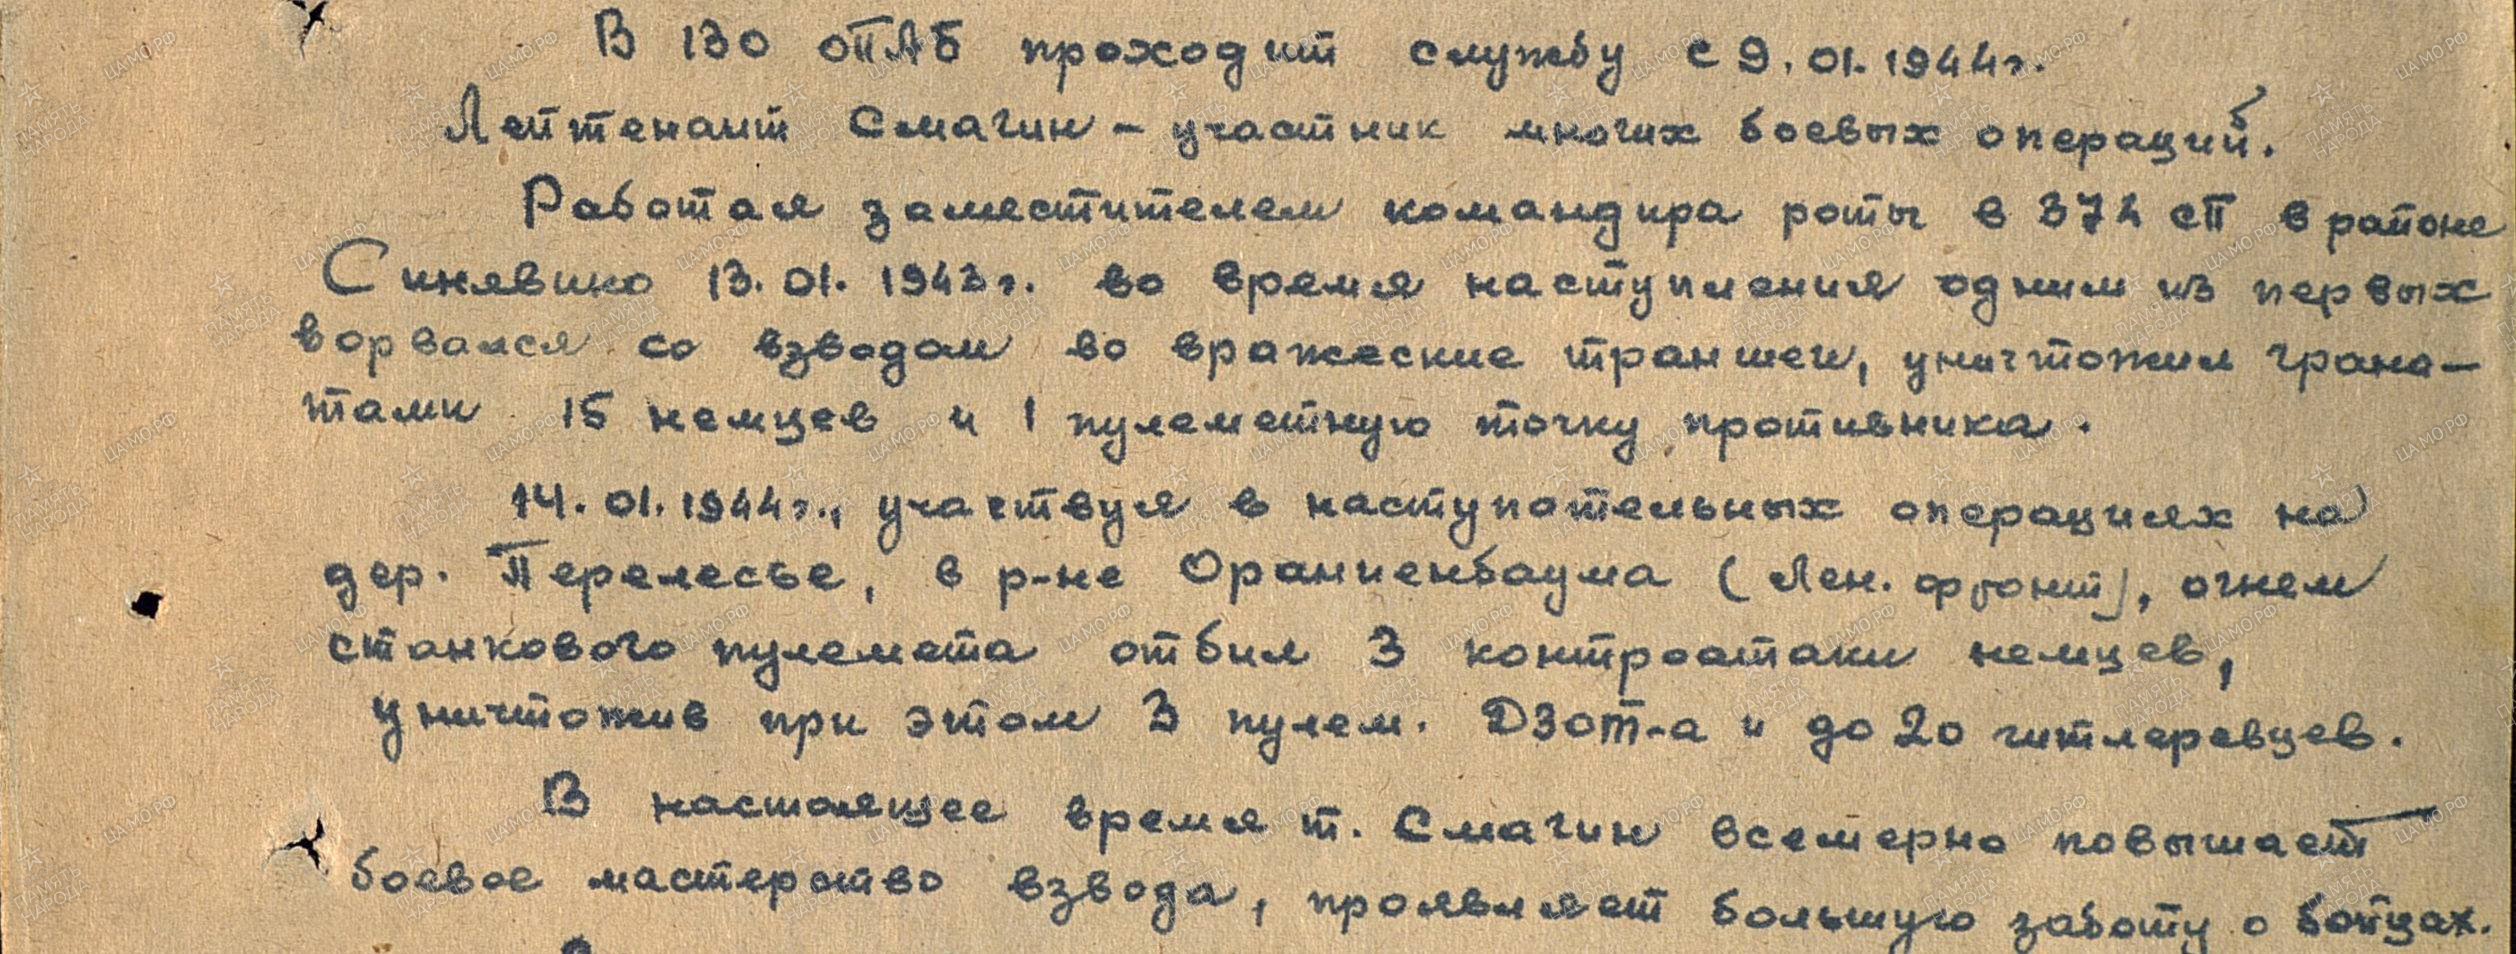 В 130 опАб проходит службу с 9.01.1944г.
Лейтенант Смагин – участник многих боевых операций.
Работая заместителем командира роты в 374 сп в районе
Синявино 13.01.1943г. во время наступления одним из первых
ворвался со взводом во вражеские траншеи, уничтожил грана-
тами 15 немцев и 1 пулеметную точку противника.
14.01.1944г., участвуя в наступательных операциях на
дер. Перелесье, в р-не Ораниенбаума (Лен. фронт), огнем
станкового пулемета отбил 3 контратаки немцев,
уничтожив при этом 3 пулем. ДЗОТ-а и до 20 гитлеровцев.
В настоящее время т. Смагин всемерно повышает
боевое мастерство взвода, проявляет большую заботу о бойцах.